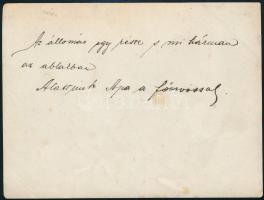 Az állomás egy része s mi hárman
az ablakban
Alattunk Apa a főorvossal.